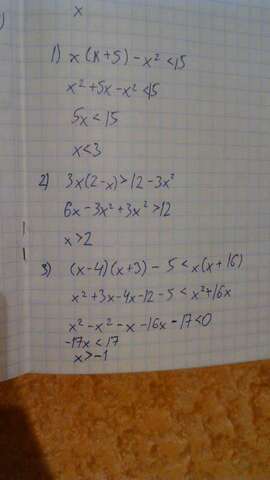 x
1) x(x+5)-x²<15
x²+5x-x²<15
5x<15
x<3
2) 3x(2-x)>12-3x²
6x-3x²+3x²>12
x>2
3) (x-4)(x+3)-5<x(x+16)
x²+3x-4x-12-5<x²+16x
x²-x²-x-16x-17<0
-17x<17
x>-1